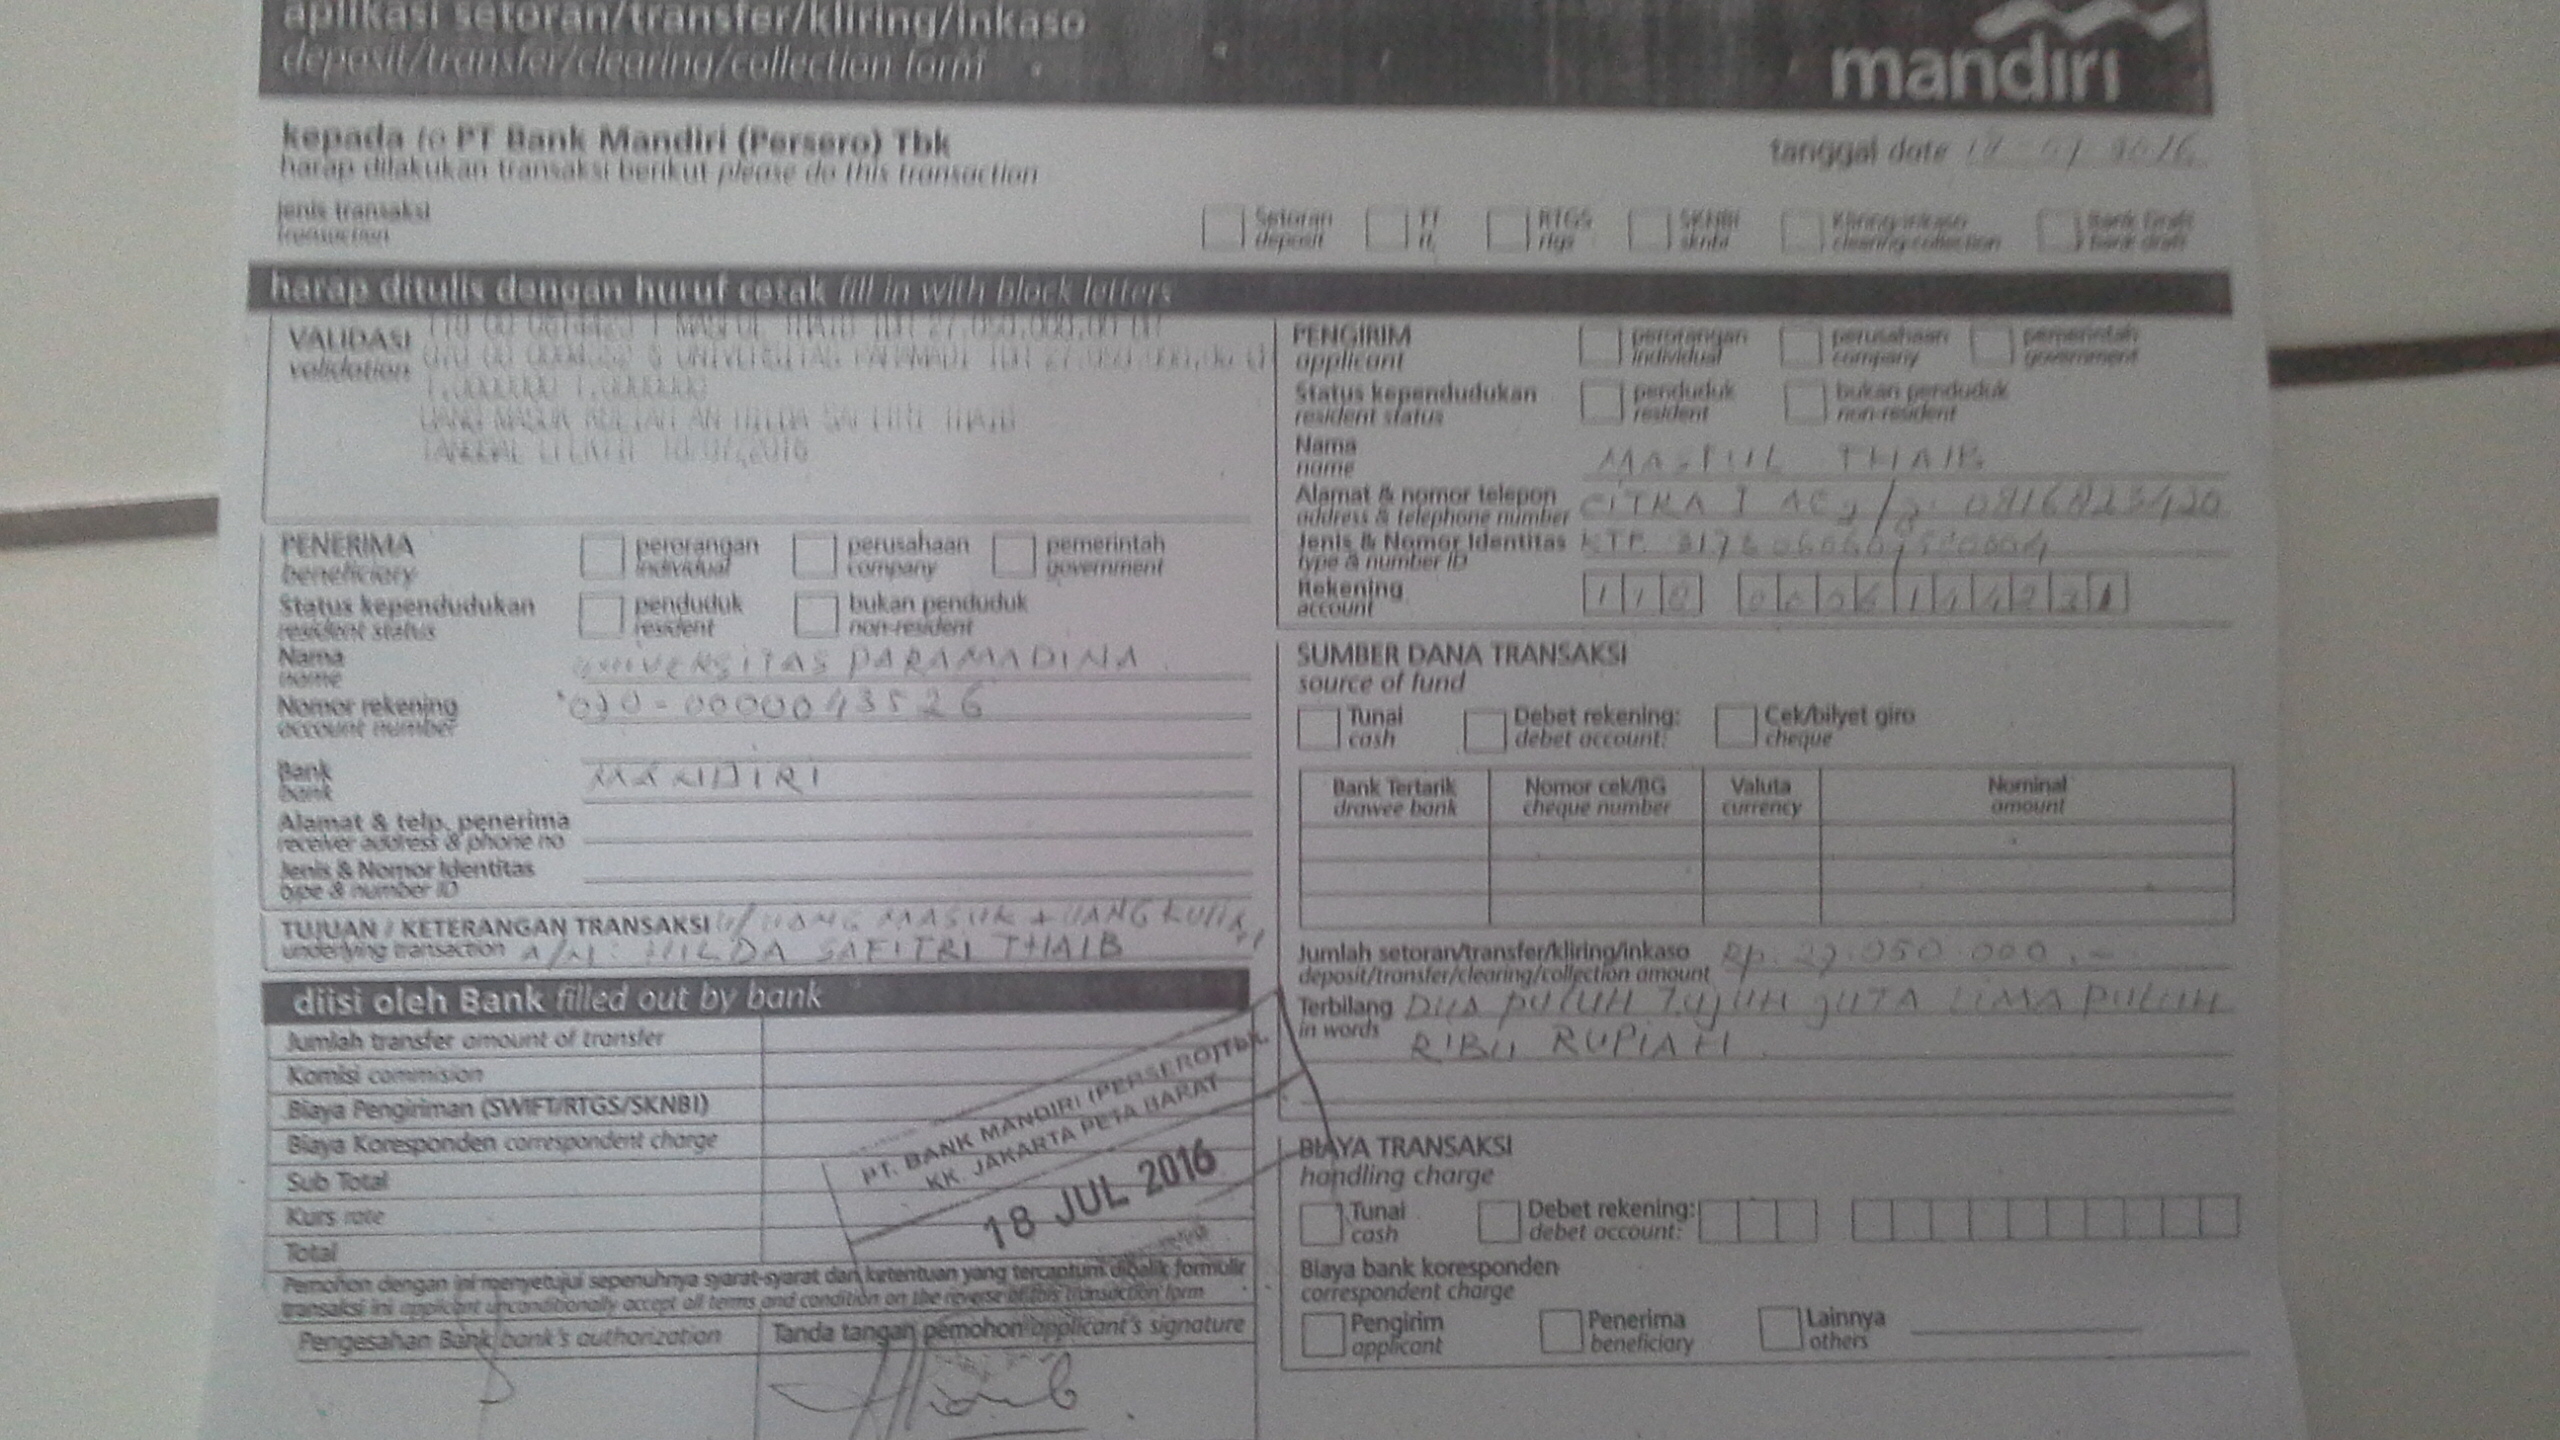 aplikasi setoran/transfer/kliring/inkaso
deposit/transfer/clearing/collection form
mandiri
kepada to PT Bank Mandiri (Persero) Tbk
harap dilakukan transaksi berikut please do this transaction
tanggal date
jenis transaksi
transaction
Setoran
deposit
TT
tt
RTGS
rtgs
SKNBI
sknbi
Kliring/inkaso
clearing/collection
Bank Draft
bank draft
harap ditulis dengan huruf cetak fill in with block letters
VALIDASI
validation
UNIVERSITAS PARAMADI IDR 27,050,000.00
UANG MASUK KULIAH AN HILDA SAFITRI THAIB
TANGGAL EFEKTIF 18/07/2016
PENERIMA
beneficiary
perorangan
individual
perusahaan
company
pemerintah
government
Status kependudukan
resident status
penduduk
resident
bukan penduduk
non-resident
Nama
name
UNIVERSITAS PARAMADINA
Nomor rekening
account number
Bank
bank
MANDIRI
Alamat & telp. penerima
receiver address & phone no
Jenis & Nomor Identitas
type & number ID
TUJUAN / KETERANGAN TRANSAKSI U/ UANG MASUK + UANG KULIAH
underlying transaction A/N: HILDA SAFITRI THAIB
diisi oleh Bank filled out by bank
Jumlah transfer amount of transfer
Komisi commision
Biaya Pengiriman (SWIFT/RTGS/SKNBI)
Biaya Koresponden correspondent charge
Sub Total
Kurs rate
Total
PT. BANK MANDIRI (PERSERO)Tbk.
KK. JAKARTA PETA BARAT
18 JUL 2016
Pemohon dengan ini menyetujui sepenuhnya syarat-syarat dan ketentuan yang tercantum dibalik formulir
transaksi ini applicant unconditionally accept all terms and condition on the reverse of this transaction form
Pengesahan Bank bank's authorization
Tanda tangan pemohon applicant's signature
PENGIRIM
applicant
perorangan
individual
perusahaan
company
pemerintah
government
Status kependudukan
resident status
penduduk
resident
bukan penduduk
non-resident
Nama
name
MASFUL THAIB
Alamat & nomor telepon
address & telephone number
CITRA I
Jenis & Nomor Identitas
type & number ID
KTP
Rekening
account
SUMBER DANA TRANSAKSI
source of fund
Tunai
cash
Debet rekening:
debet account:
Cek/bilyet giro
cheque
Bank Tertarik
drawee bank
Nomor cek/BG
cheque number
Valuta
currency
Nominal
amount
Jumlah setoran/transfer/kliring/inkaso Rp. 27.050.000,-
deposit/transfer/clearing/collection amount
Terbilang DUA PULUH TUJUH JUTA LIMA PULUH
in words RIBU RUPIAH
BIAYA TRANSAKSI
handling charge
Tunai
cash
Debet rekening:
debet account:
Biaya bank koresponden
correspondent charge
Pengirim
applicant
Penerima
beneficiary
Lainnya
others